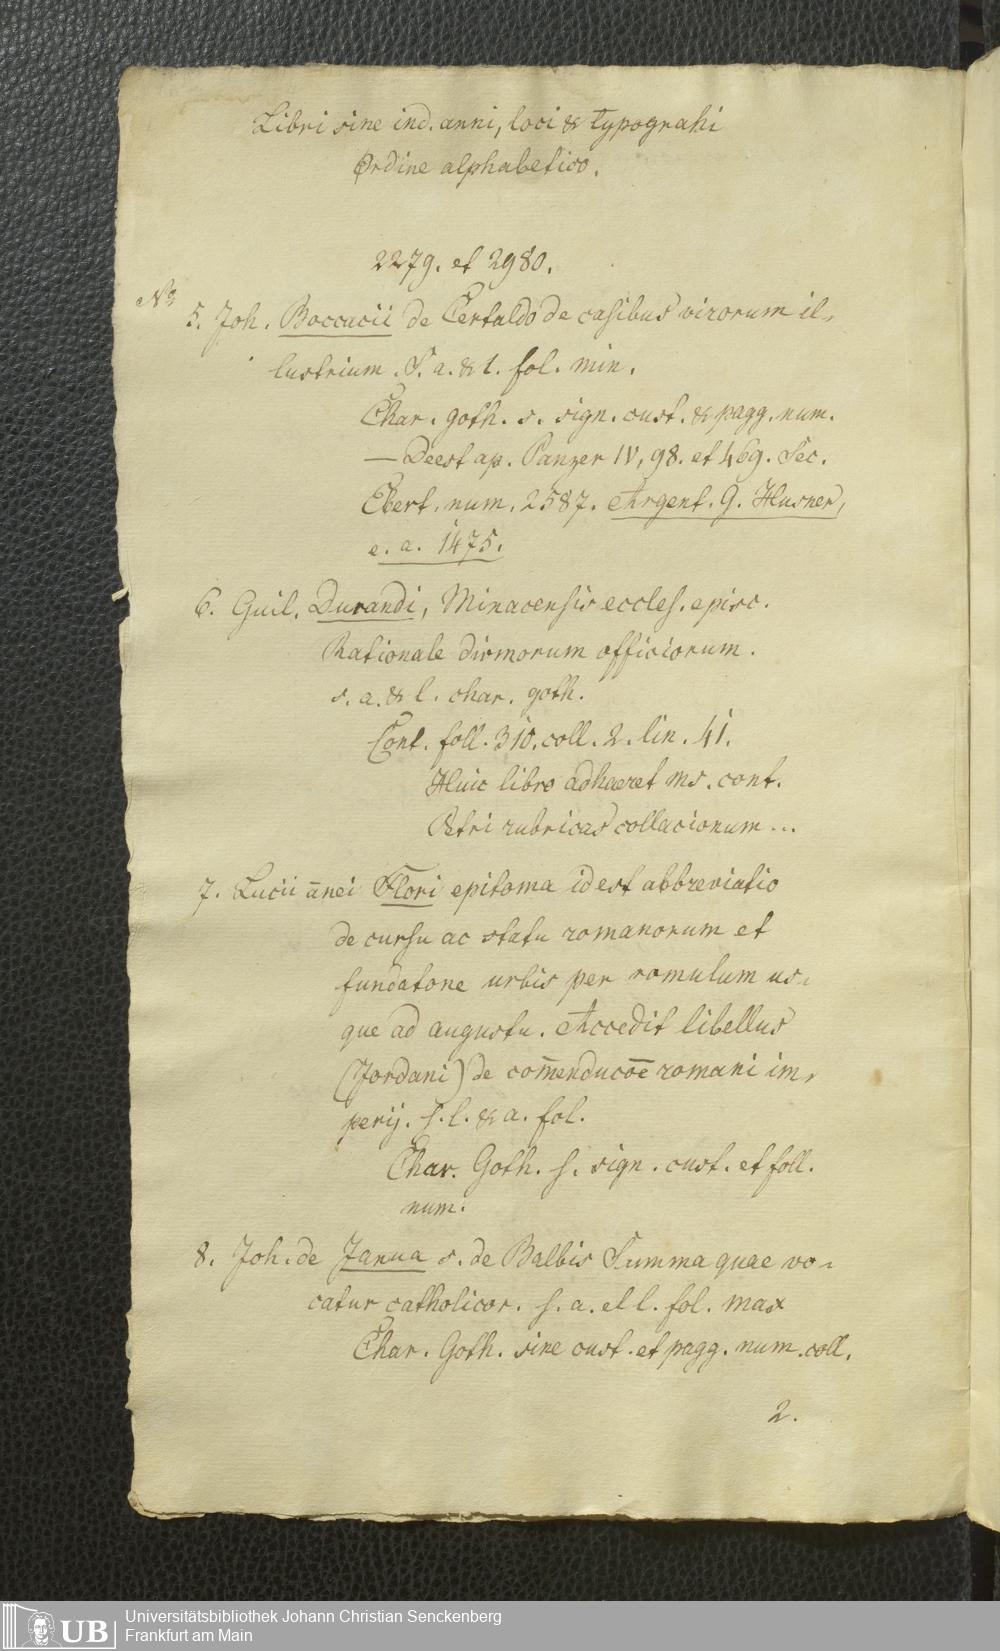 Libri sine ind. anni, loci & typograhi
Ordine alphabetico.
2279. et 2980.
No
5. Joh. Boccacii de Certaldo de casibus virorum il-
lustrium. S. a. & l. fol. min.
Char. goth. s. sign. cust. & pagg. num.
— Deest ap. Panzer IV, 98. et 469. Sec.
Ebert. num. 2587. Argent. G. Husner,
c. a. 1475.
6. Guil. Durandi, Minacensis eccles. episc.
Rationale divinorum officiorum.
s. a. & l. char. goth.
Cont. foll. 310. coll. 2. lin. 41.
Huic libro adhaeret ms. cont.
Petri rubricas collacionum ...
7. Lucii ānei Flori epitoma id est abbreviatio
de cursu ac statu romanorum et
fundatone urbis per romulum us-
que ad augustu. Accedit libellus
(Jordani) de com̄enducōe romani im-
perij. s. l. & a. fol.
Char. Goth. s. sign. cust. et foll.
num.
8. Joh. de Janua s. de Balbis Summa quae vo-
catur catholicor. s. a. et l. fol. max
Char. Goth. sine cust. et pagg. num. coll.
2.
UB
Universitätsbibliothek Johann Christian Senckenberg
Frankfurt am Main